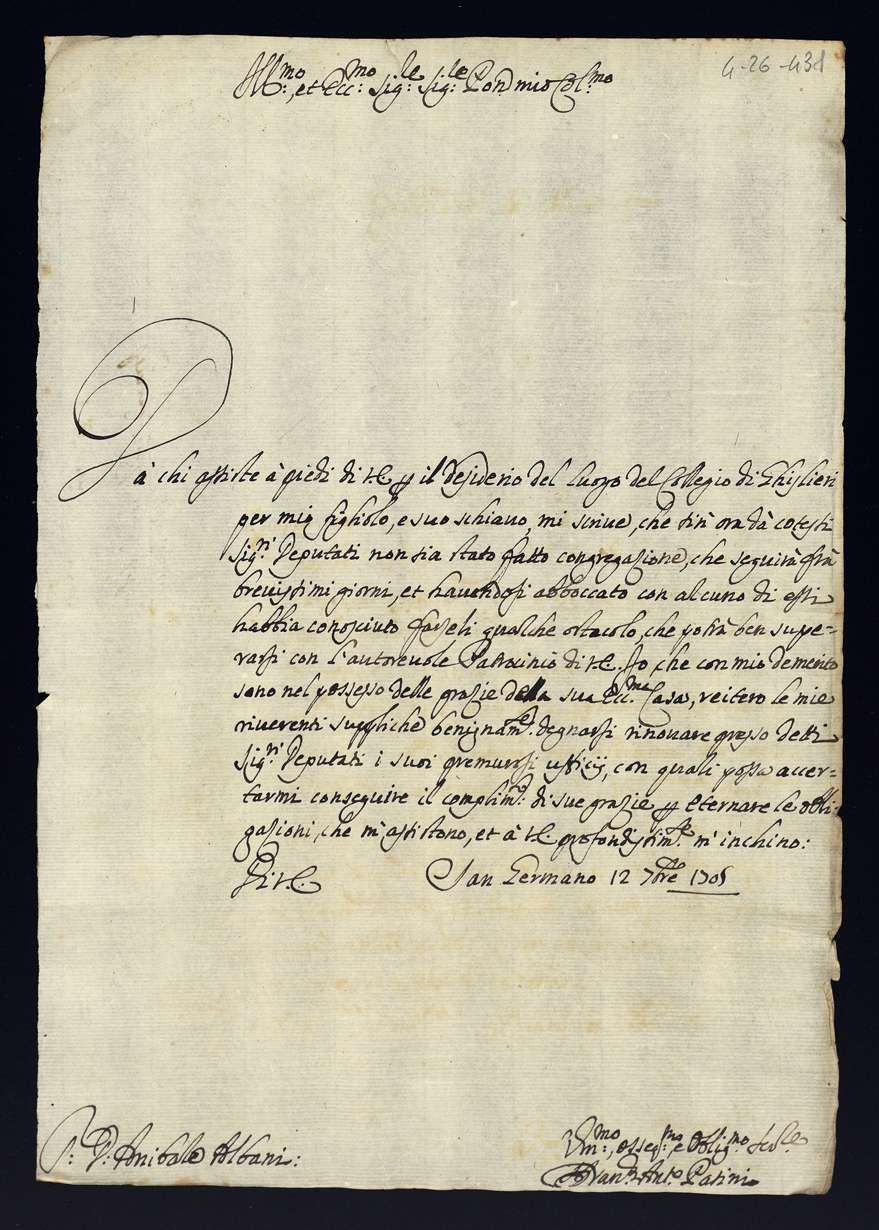 4-26-431
Ill:mo, et Ecc:mo Sig:le Sig:le Pon~ mio Col:mo
Dà chi assiste à piedi di V.E. p il desiderio del luogo del Collegio di Ghislieri
per mio figliolo, e suo schiavo, mi scrive, che sin'ora dà cotesti
Sig:ri Deputati non sia stato fatto congregazione, che seguirà frà
brevissimi giorni, et havendosi abboccato con alcuno di essi
habbia conosciuto farseli qualche ostacolo, che potrà ben supe=
rarsi con l'autorevole Patrocinio di V.E. Io, che con mio demerito
sono nel possesso delle grazie della sua Ecc:ma Casa, reitero le mie
riverenti suppliche benignam:te degnarsi rinovare presso detti
Sig:ri Deputati i suoi premurosi ufficij, con quali possa accer=
tarmi conseguire il complim:to di sue grazie p eternare le obli=
gazioni, che m'assistono, et à V.E. profondissim:te m'inchino:
Di V.E. San Germano 12 7bre 1705
S: D: Anibale Albani:
Um:mo, osseq:mo e oblig:mo Ser:re
Fran:co Ant:o Patini